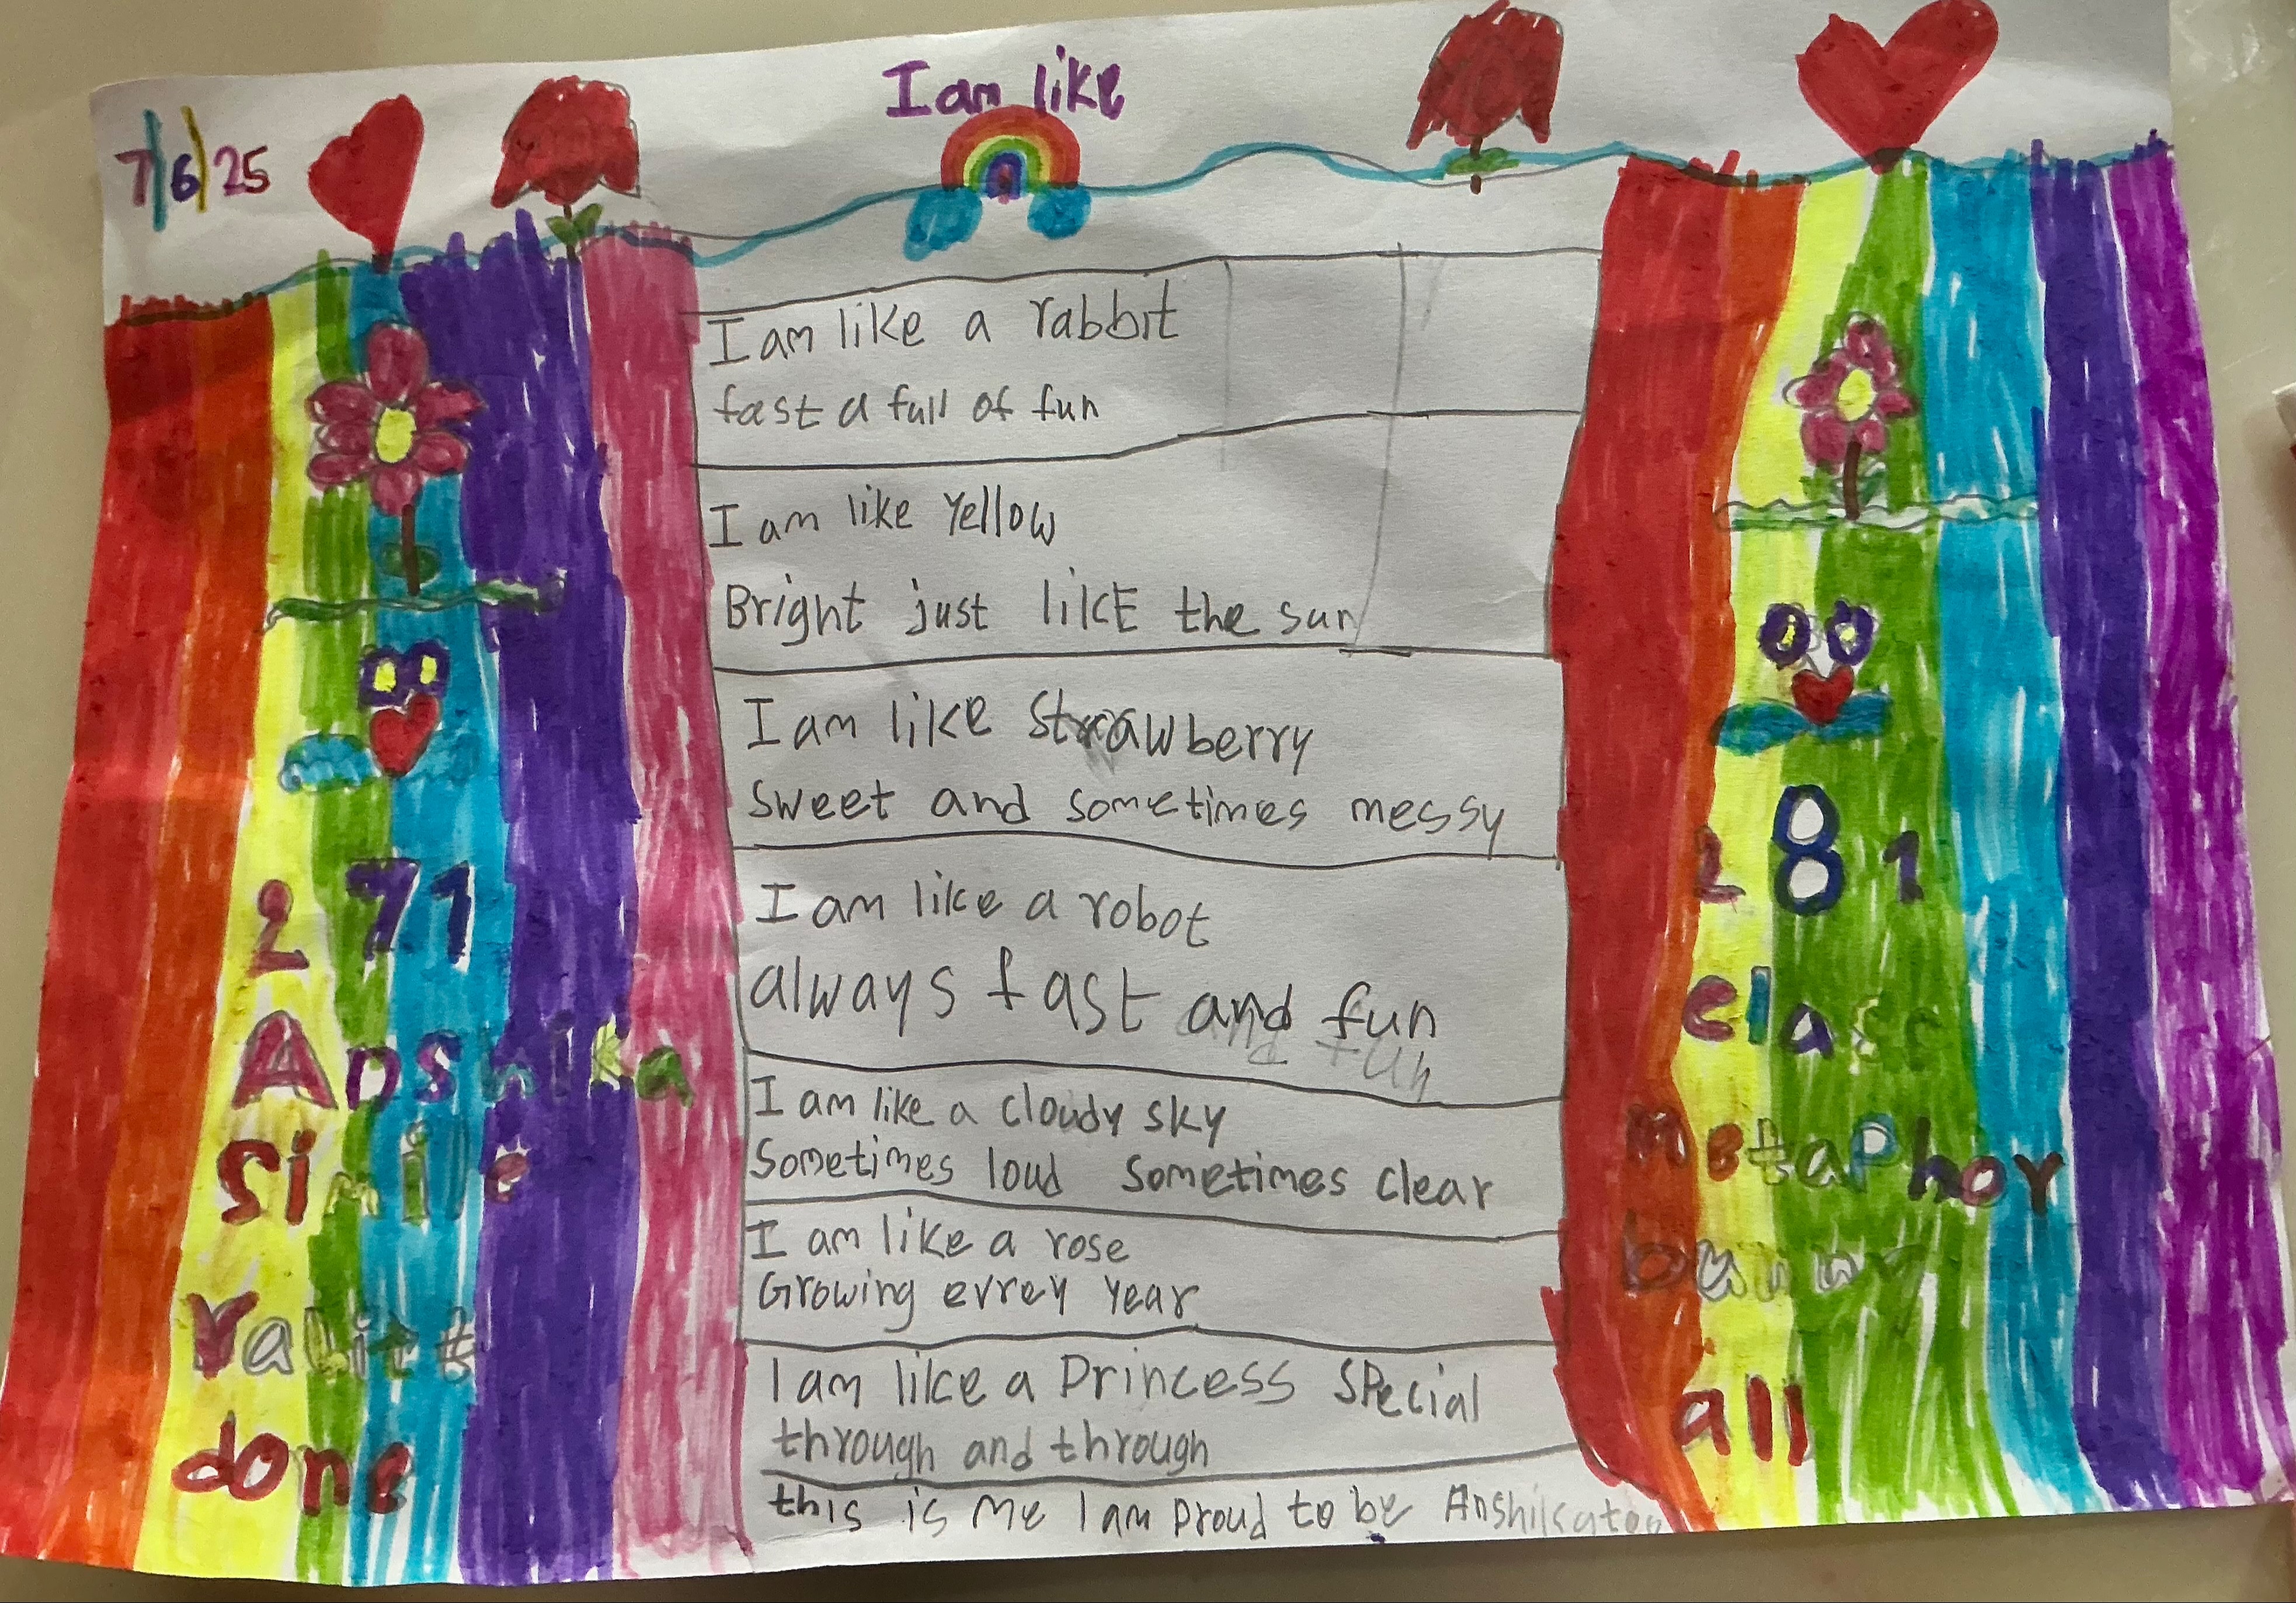 I am like
7/6/25
I am like a rabbit
fast a full of fun
I am like yellow
Bright just likE the sun
I am like strawberry
Sweet and sometimes messy
I am like a robot
always fast and fun
I am like a cloudy sky
Sometimes loud sometimes clear
I am like a rose
Growing evrey year
I am like a Princess special
through and through
this is me I am proud to be Anshika too
271
Anshika
Simile
rabitt
done
281
class
Metaphor
all